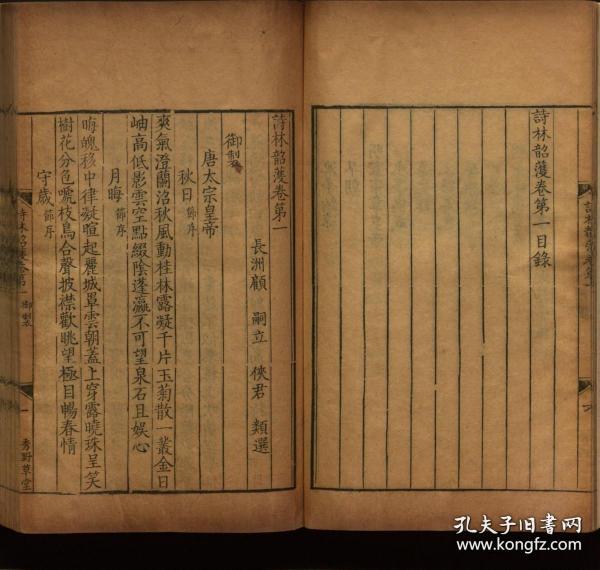 詩林韶濩卷第一目錄
詩林韶濩卷第一
長洲顧 嗣立 俠君 類選
御製
唐太宗皇帝
秋日 節序
爽氣澄蘭沼秋風動桂林露凝千片玉菊散一叢金日
岫高低影雲空點綴陰蓬瀛不可望泉石且娱心
月晦 節序
晦魄移中律凝暄起麗城罩雲朝蓋上穿露曉珠呈笑
樹花分色嗁枝鳥合聲披襟歡眺望極目暢春情
守歲 節序
詩林韶濩卷第一 御製
一
秀野草堂
孔夫子旧書网
www.kongfz.com